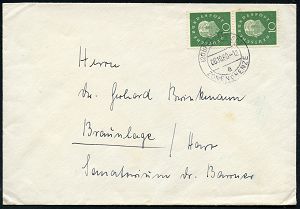 DEUTSCHE BUNDESPOST
10
DEUTSCHE BUNDESPOST
10
ZONENGRENZE
a
Herrn
Dr. Gerhard Brinkmann
Braunlage / Harz
Sanatorium Dr. Barner